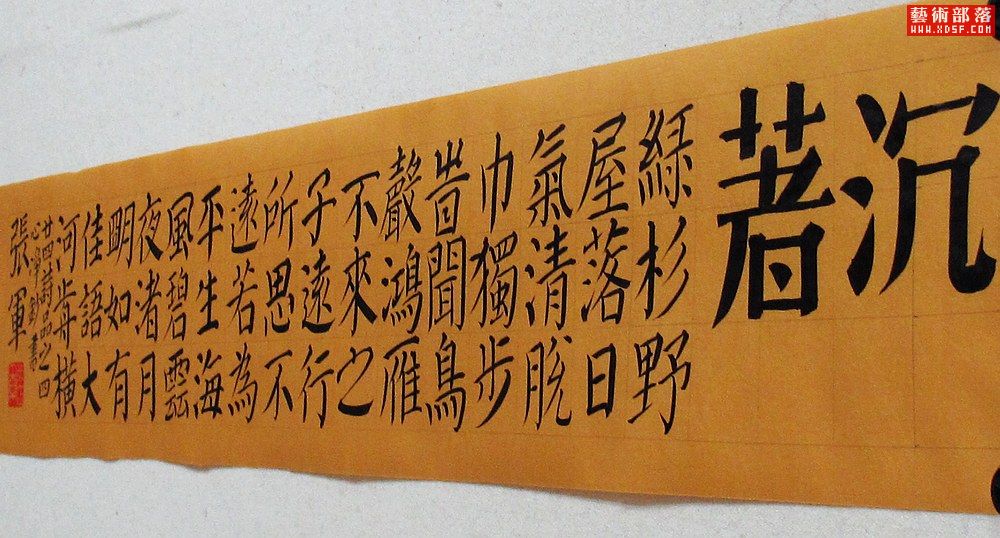 藝術部落
WWW.XDSF.COM
沉
著
綠杉野
屋落日
氣清脫
巾獨步
旹聞鳥
聲鴻雁
不來之
子遠行
所思不
遠若為
平生海
風碧雲
夜渚月
明如有
佳語大
河歬橫
廿四詩品之四
心淨書
張軍